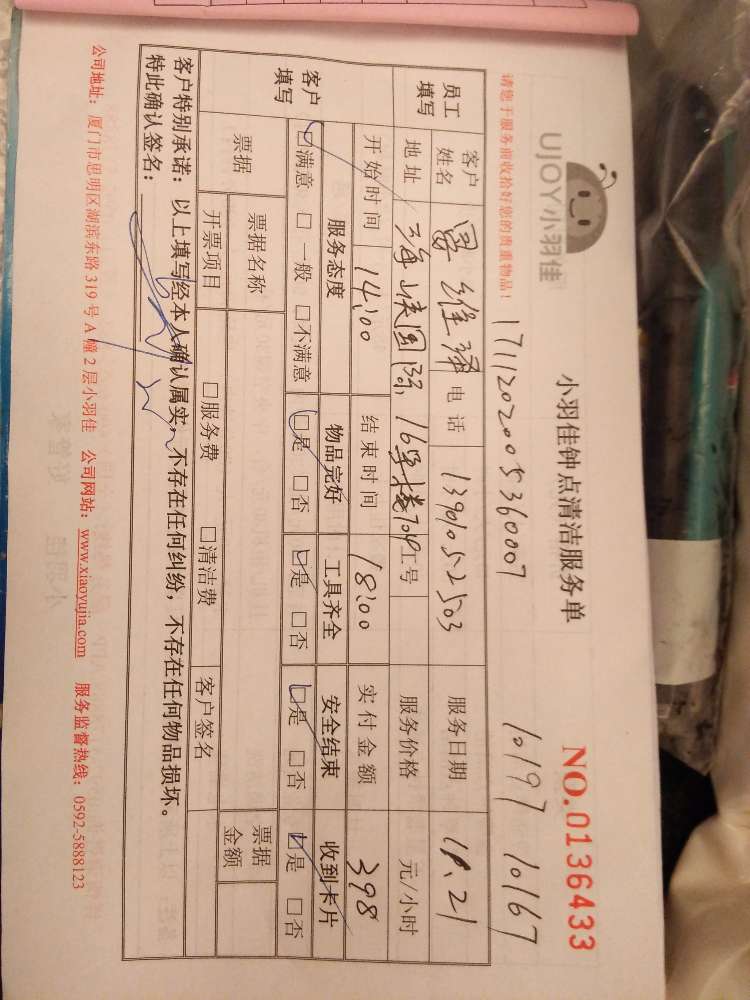 UJOY小羽佳
小羽佳钟点清洁服务单
NO.0136433
请您于服务前收拾好您的贵重物品！
1711202005360007 10197 10167
员工填写 客户姓名 电话 13901052503 服务日期 11.21
地址 海峡国际 16号楼709 工号 服务价格 元/小时
开始时间 14:00 结束时间 18:00 实付金额 398
客户填写 服务态度 物品完好 工具齐全 安全结束 收到卡片
☑满意 □一般 □不满意 ☑是 □否 ☑是 □否 ☑是 □否 ☑是 □否
票据 票据名称 票据金额
开票项目 □服务费 □清洁费 客户签名
客户特别承诺：以上填写经本人确认属实，不存在任何纠纷，不存在任何物品损坏。
特此确认签名：
公司地址：厦门市思明区湖滨东路319号A幢2层小羽佳 公司网站：www.xiaoyujia.com 服务监督热线：0592-5888123